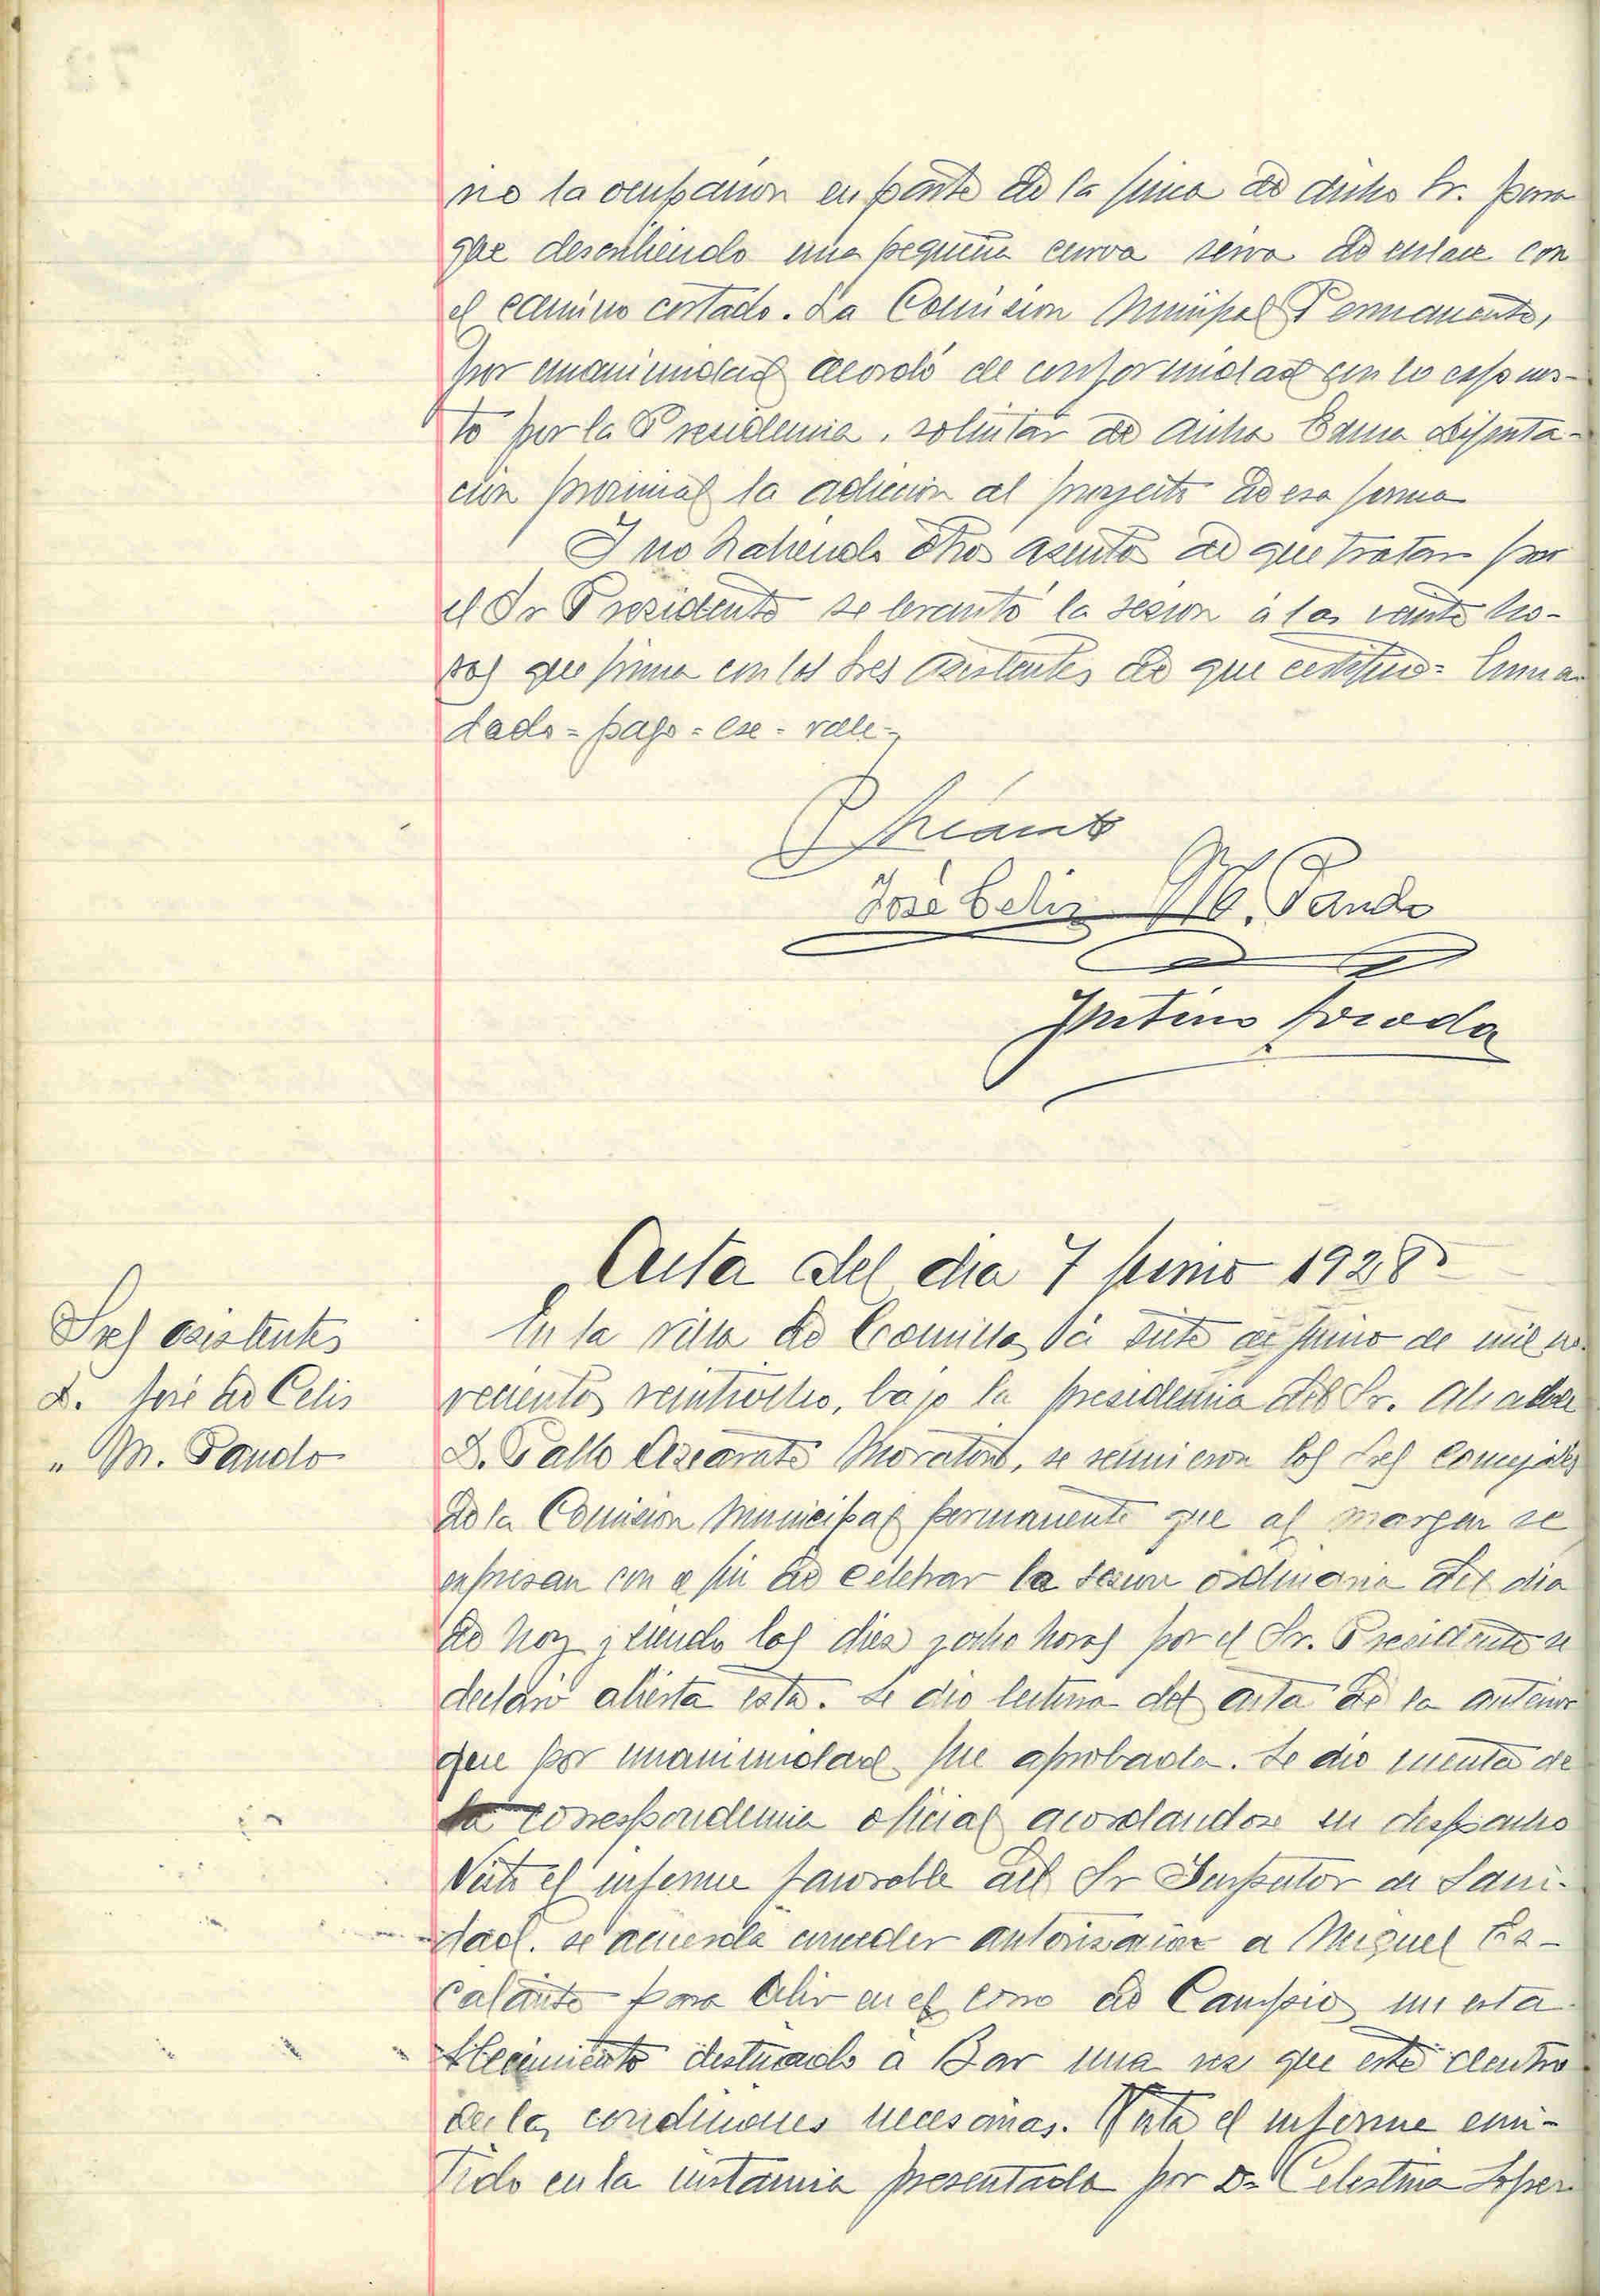 rio la ocupación en parte de la finca de dicho Sr. para
que describiendo una pequeña curva sirva de enlace con
el camino cortado. La Comisión Municipal Permanente,
por unanimidad acordó de conformidad con lo expues-
to por la Presidencia, solicitar de dicha Excma Diputa-
ción provincial la adición al proyecto de esa forma
Y no habiendo otros asuntos de que tratar por
el Sr Presidente se levantó la sesión á las veinte ho-
ras que firma con los Sres asistentes de que certifico=
dado=pago=ese=vale=
José Celis M. Pando
Acta del dia 7 Junio 1928
Sres asistentes
D. José de Celis
" M. Pando
En la villa de Comillas á siete de Junio de mil no-
vecientos veintiocho, bajo la presidencia del Sr. Alcalde
D. Pablo Azcarate Moratón, se reunieron los Sres Concejales
de la Comisión Municipal permanente que al margen se
expresan con el fin de celebrar la sesión ordinaria del dia
de hoy y siendo las diez y ocho horas por el Sr. Presidente se
declaró abierta esta. Se dio lectura del acta de la anterior
que por unanimidad fue aprobada. Se dio cuenta de
la correspondencia oficial acordandose su despacho
Visto el informe favorable del Sr Inspector de Sani-
dad. se acuerda conceder autorización a Miguel Es-
calante para abrir en el corro de Campios un esta-
blecimiento destinado a Bar una vez que esté dentro
de las condiciones necesarias. Visto el informe emi-
tido en la instancia presentada por Dª Celestina Lopez